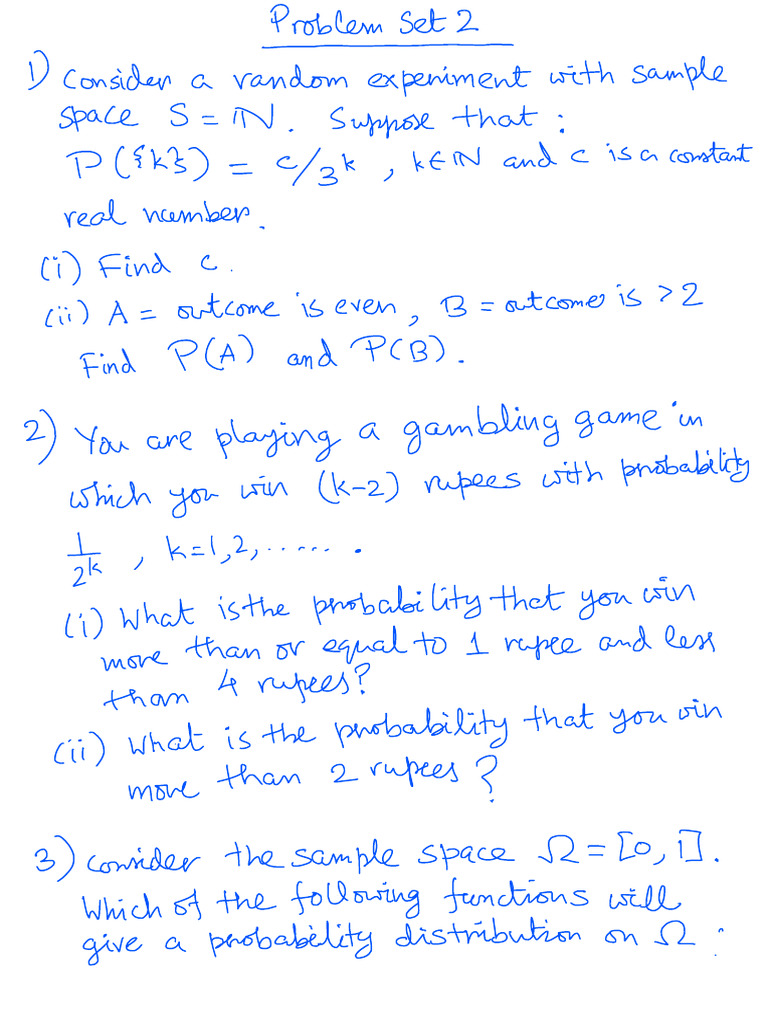 Problem Set 2
1) Consider a random experiment with sample
space S = ℕ. Suppose that :
P({k}) = c/3^k , k∈ℕ and c is a constant
real number.
(i) Find c.
(ii) A = outcome is even, B = outcome is > 2
Find P(A) and P(B).
2) You are playing a gambling game in
which you win (k-2) rupees with probability
1/2^k , k=1,2,.......
(i) What is the probability that you win
more than or equal to 1 rupee and less
than 4 rupees?
(ii) What is the probability that you win
more than 2 rupees?
3) Consider the sample space Ω = [0, 1].
Which of the following functions will
give a probability distribution on Ω :